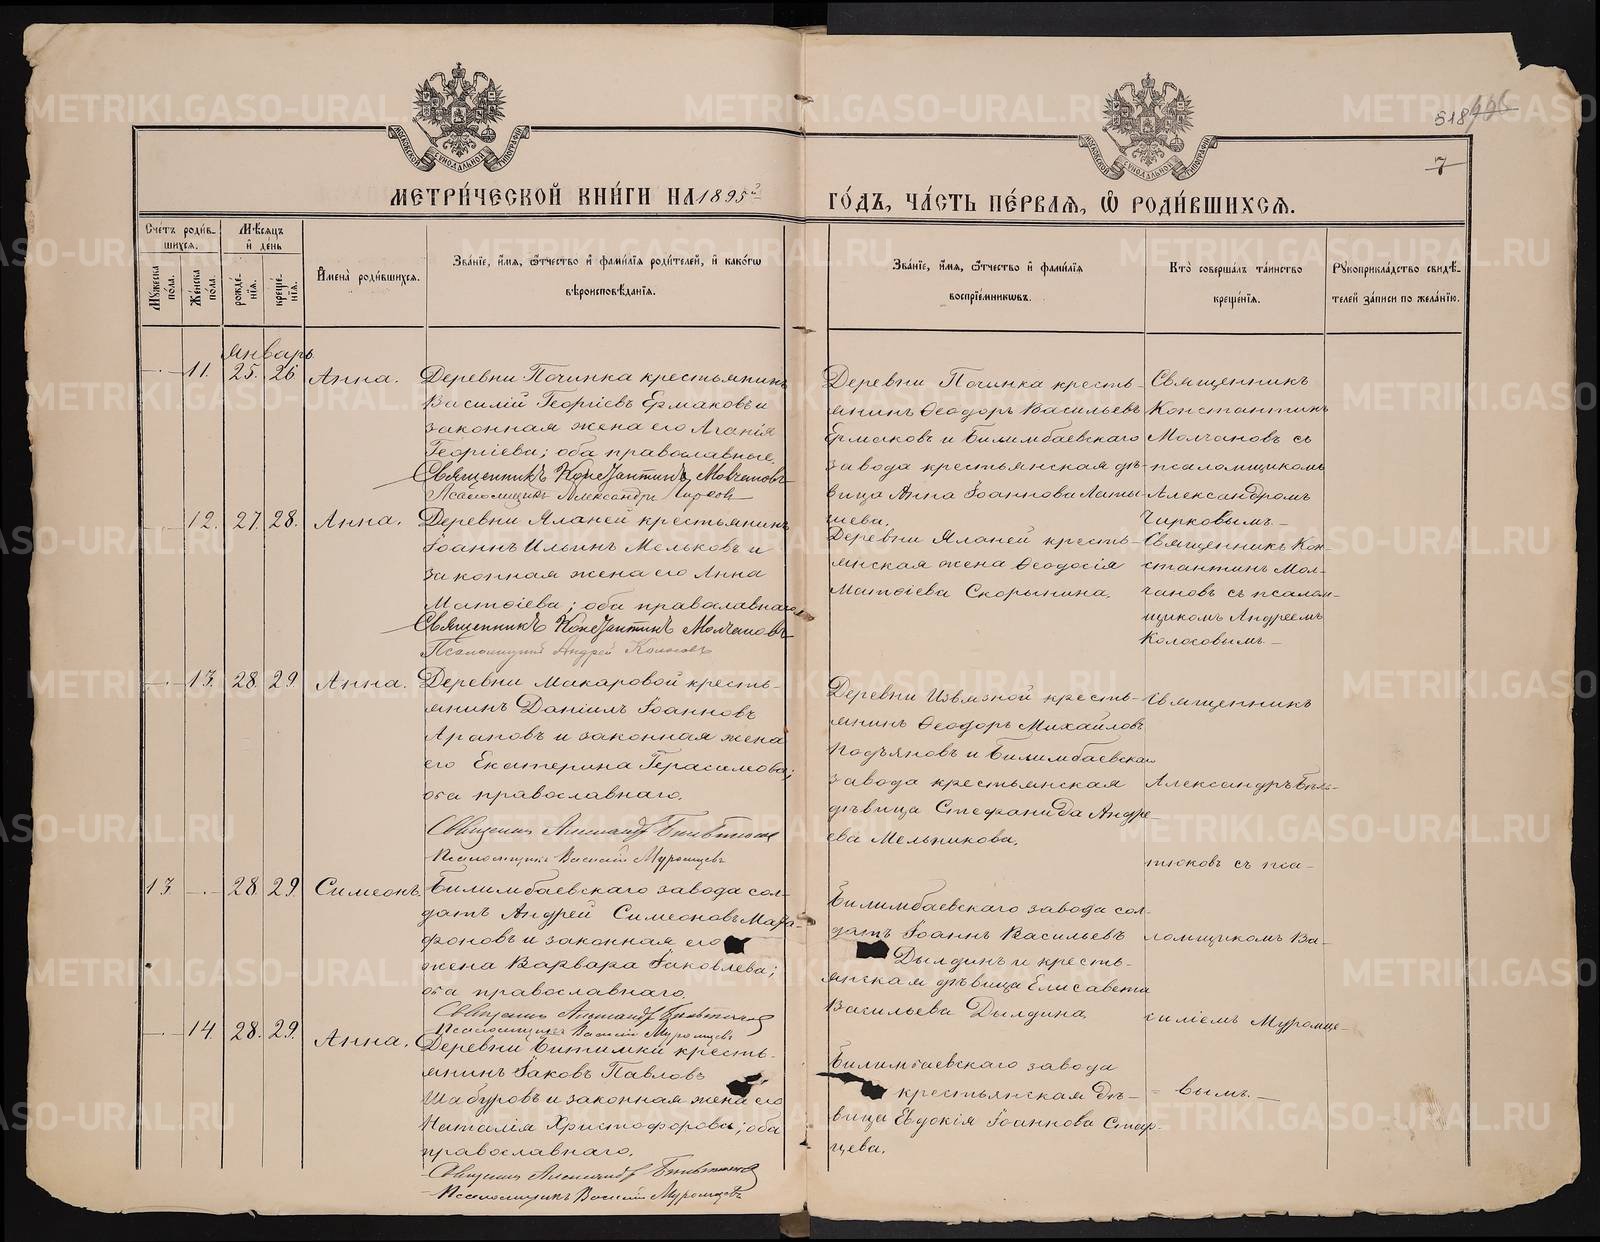 518
7
МЕТРИЧЕСКОЙ КНИГИ НА 1895й ГОДЪ, ЧАСТЬ ПЕРВАЯ, Ѡ РОДИВШИХСЯ.
Счетъ родившихся.
Мужеска пола.
Женска пола.
Мѣсяцъ и день
рожденія.
крещенія.
Имена родившихся.
Званіе, имя, ѿчество и фамилія родителей, и какогѡ
вѣроисповѣданія.
Званіе, имя, ѿчество и фамилія
воспріемниковъ.
Кто совершалъ таинство
крещенія.
Рукоприкладство свидѣтелей записи по желанію.
Январь.
11. 25. 26 Анна.
Деревни Починка крестьянинъ
Василій Георгіевъ Ермаковъ и
законная жена его Агапія
Георгіева; оба православные.
Священникъ Константинъ Молчановъ
Псаломщикъ Александръ Чирковъ
Деревни Починка кресть-
янинъ Ѳеодоръ Васильевъ
Ермаковъ и Билимбаевскаго
завода крестьянская дѣ-
вица Анна Іоаннова Латы-
шева.
Священникъ
Константинъ
Молчановъ съ
псаломщикомъ
Александромъ
Чирковымъ.
12. 27. 28. Анна.
Деревни Яланей крестьянинъ
Іоаннъ Ильинъ Мельковъ и
законная жена его Анна
Матѳіева; оба православнаго
Священникъ Константинъ Молчановъ
Псаломщикъ Андрей Колосовъ
Деревни Яланей кресть-
янская жена Ѳеодосія
Матѳіева Скорынина.
Священникъ Кон-
стантинъ Мол-
чановъ съ псалом-
щикомъ Андреемъ
Колосовымъ.
13. 28. 29. Анна.
Деревни Макаровой кресть-
янинъ Даніилъ Іоанновъ
Араповъ и законная жена
его Екатерина Герасимова;
оба православнаго.
Священникъ Александръ
Псаломщикъ Василій Муромцевъ
Деревни Извязной кресть-
янинъ Ѳеодоръ Михайловъ
Подъяновъ и Билимбаевскаго
завода крестьянская
дѣвица Стефанида Андре
ева Мельникова.
Священникъ
Александръ
тюковъ съ пса-
13 28. 29. Симеонъ.
Билимбаевскаго завода сол-
датъ Андрей Симеоновъ Мара-
фоновъ и законная его
жена Варвара Іаковлева;
оба православнаго.
Священникъ Александръ
Псаломщикъ Василій Муромцевъ
Билимбаевскаго завода сол-
датъ Іоаннъ Васильевъ
Дылдинъ и кресть-
янская дѣвица Елисавета
Васильева Дылдина
ломщикомъ Ва-
силіемъ Муромце-
14. 28. 29. Анна.
Деревни Битимки кресть-
янинъ Іаковъ Павловъ
Шабуровъ и законная жена его
Наталія Христофорова; оба
православнаго.
Священникъ Александръ
Псаломщикъ Василій Муромцевъ
Билимбаевскаго завода
крестьянская дѣ-
вица Евдокія Іоаннова Стар-
цева.
вымъ.